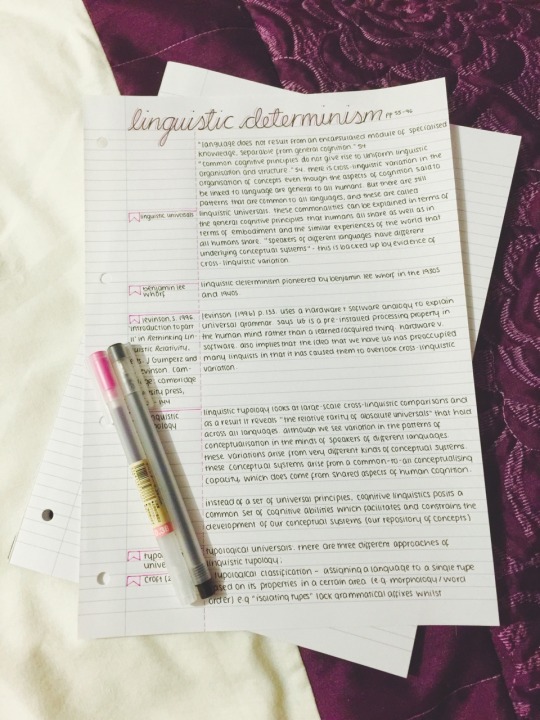 linguistic determinism pp 53-96
"language does not result from an encapsulated module of specialised
knowledge, separable from general cognition." 54
"common cognitive principles do not give rise to uniform linguistic
organization and structure." 54. there is cross-linguistic variation in the
organisation of concepts even though the aspects of cognition said to
be linked to language are general to all humans. But there are still
patterns that are common to all languages, and these are called
linguistic universals
linguistic universals. these commonalities can be explained in terms of
the general cognitive principles that humans all share as well as in
terms of embodiment and the similar experiences of the world that
all humans share. "speakers of different languages have different
underlying conceptual systems" - this is backed up by evidence of
cross-linguistic variation.
benjamin lee
whorf
linguistic determinism pioneered by benjamin lee whorf in the 1930s
and 1940s
levinson, s. 1996.
introduction to part
in Rethinking Lin-
guistic Relativity,
Gumperz and
levinson. cam-
cambridge
press,
levinson (1996) p. 133. uses a hardware & software analogy to explain
universal grammar. says UG is a pre-installed processing property in
the human mind rather than a learned/acquired thing. hardware v.
software. also implies that the idea that we have UG has preoccupied
many linguists in that it has caused them to overlook cross-linguistic
variation.
linguistic typology looks at large-scale cross-linguistic comparisons and
as a result it reveals "the relative rarity of absolute universals" that hold
across all languages. although we see variation in the patterns of
conceptualisation in the minds of speakers of different languages.
these variations arise from very different kinds of conceptual systems.
these conceptual systems arise from a common-to-all conceptualising
capacity, which does come from shared aspects of human cognition.
instead of a set of universal principles, cognitive linguistics posits a
common set of cognitive abilities which facilitates and constrains the
development of our conceptual systems (our repository of concepts)
typological universals. there are three different approaches of
linguistic typology:
croft
typological classification - assigning a language to a single type
based on its properties in a certain area. (e.g. morphology/word
order) e.g "isolating types" lack grammatical affixes whilst